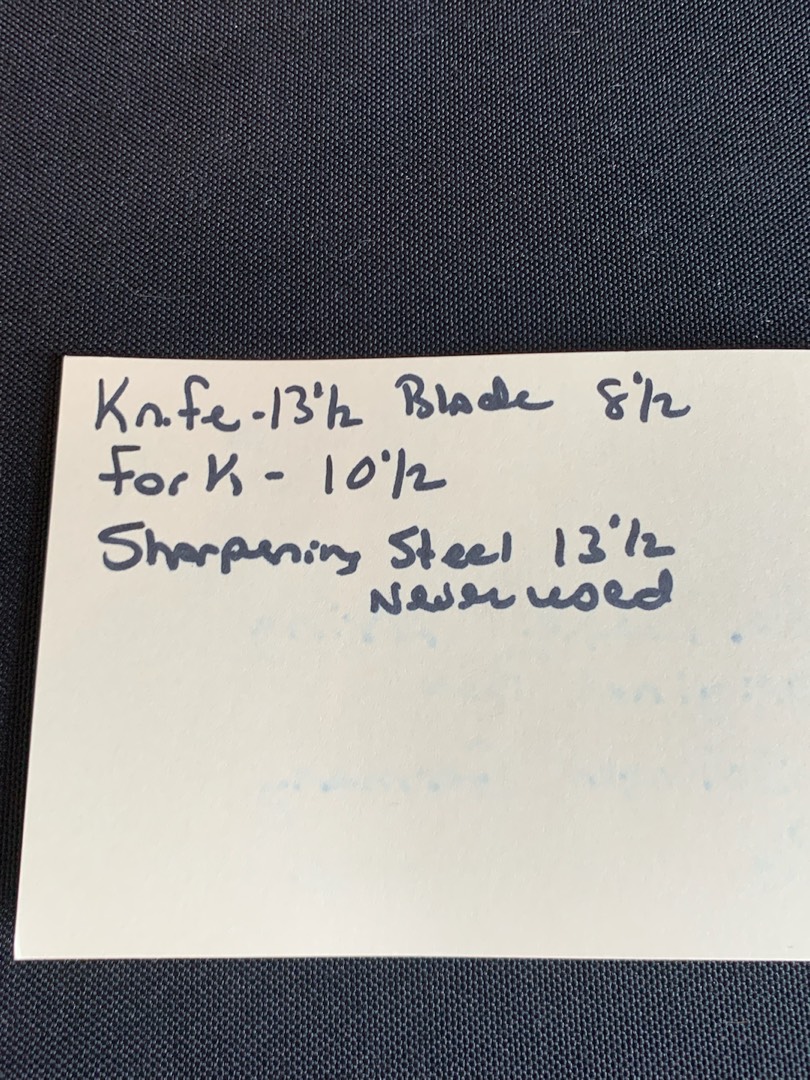 Knife - 13 1/2 Blade 8 1/2
Fork - 10 1/2
Sharpening Steel 13 1/2
Never used